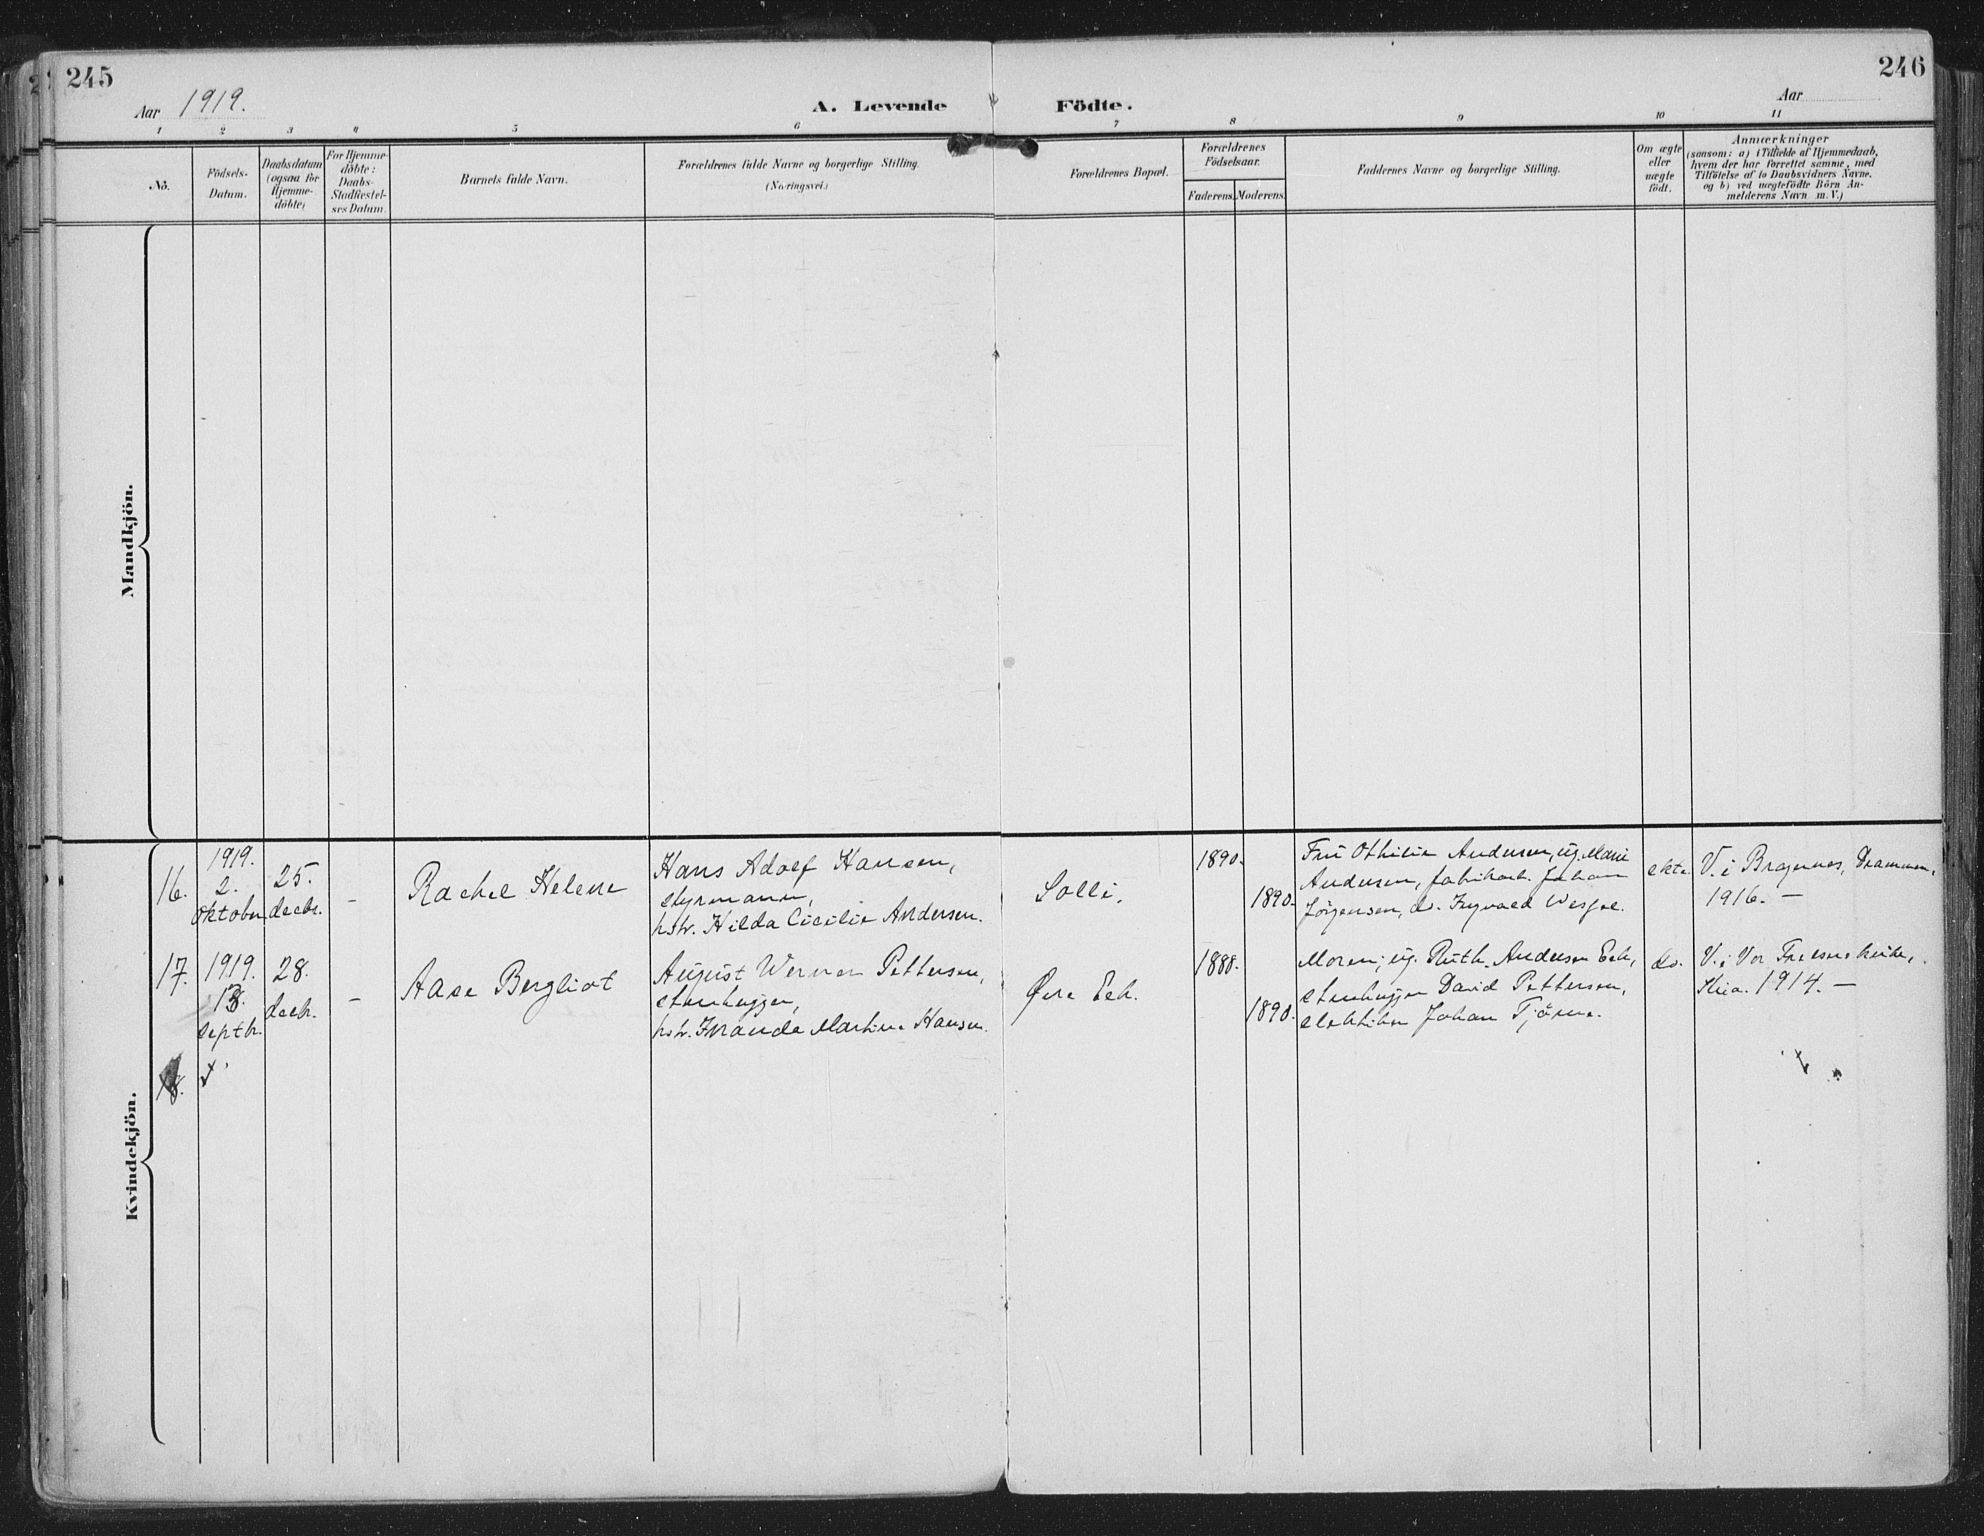 245
246
Aar 1919.
A. Levende Födte.
Aar
1 2 3 4 5 6 7 8 9 10 11
No.
Födsels-
Datum.
Daabsdatum
(ogsaa for
Hjemme-
döbte)
For Hjemme-
döbte:
Daabs-
Stadfæstel-
ses Datum
Barnets fulde Navn.
Forældrenes fulde Navne og borgerlige Stilling.
(Næringsvei.)
Forældrenes Bopæl.
Forældrenes
Födselsaar.
Faderens. Moderens.
Faddernes Navne og borgerlige Stilling.
Om ægte
eller
uægte
födt.
Anmærkninger
(saasom: a) i Tilfælde af Hjemmedaab,
hvem der har forrettet samme, med
Tilföielse af to Daabsvidners Navne.
og b) ved uægtefödte Börn An-
melderens Navn m. V.)
Mandkjön.
Kvindekjön.
16.
1919.
2.
oktober
25.
decbr.
-
Rachel Helene
Hans Adolf Hansen,
styrmann,
hstr. Hilda Cicilie Andersen.
Solli.
1890.
1890.
Fru Othilie Andersen, ug. Marie
Andersen, fabrikarb. Johan
Jörgensen, do. Ingvald
ekte.
V. i Bragernes, Drammen,
1916. -
17.
1919.
13.
septbr.
28.
decbr.
-
Aase Bergliot
August Werner Pettersen,
stenhugger,
hstr. Inanda Martine Hansen.
Øvre Eek.
1888.
1890.
Moren, ug. Ruth Andersen Eek,
stenhugger David Pettersen,
elektiker Johan Tjöme.
do.
V. i Vor Frelsers kirke,
Kria. 1914. -
18.